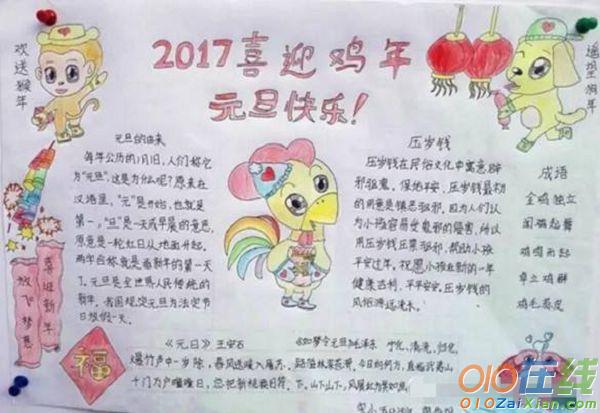 欢送猴年
2017喜迎鸡年
元旦快乐!
遥望狗年
元旦的由来
每年公历的1月1日,人们称它
为“元旦”,这是为什么呢?原来在
汉语里,“元”是开始,也就是
第一,“旦”是一天或早晨的意思,
原意是一轮红日从地面升起,
两字合称就是新年的第一天
了。元旦是全世界人民传统的
新年,
国规定元旦为法定节
日放假一天。
压岁钱
压岁钱在民俗文化中寓意辟
邪驱鬼,保佑平安,压岁钱最初
的用意是镇恶驱邪。因为人们认
为小孩容易受鬼祟的侵害,所以
用压岁钱压祟驱邪,帮助小孩
平安过年。祝愿小孩在新的一年
健康吉利、平平安安。压岁钱的
风俗源远流长。
成语
金鸡独立
闻鸡起舞
鸡鸣而起
卓立鸡群
鸡毛蒜皮
喜迎新年
放飞梦想
福
《元日》王安石
爆竹声中一岁除,春风送暖入屠苏。
千门万户曈曈日,总把新桃换旧符。
如梦令元旦 毛泽东
宁化、清流、归化,
路隘林深苔滑。今日向何方,直指武夷山
下。山下山下,风展红旗如画。
010在线
010ZaiXian.com